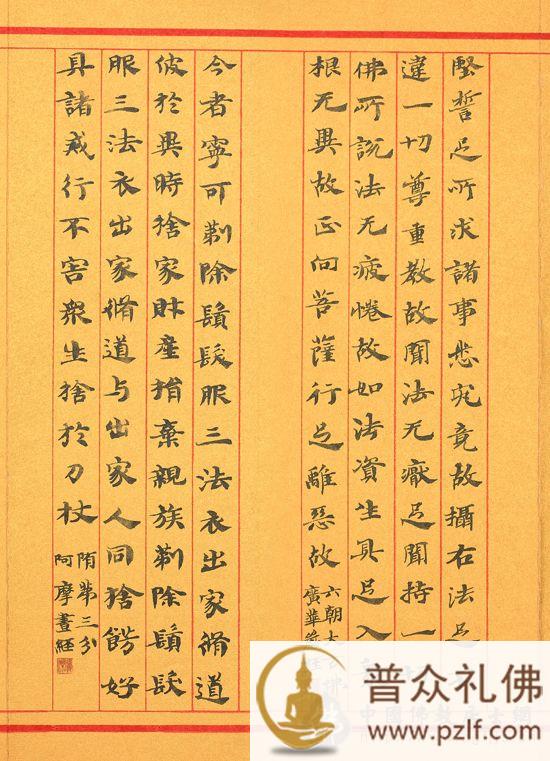 堅誓足所求諸事悉究竟故攝右法足
違一切尊重教故聞法无厭足聞持一
佛所說法无疲惓故如法資生具足入
根无異故正向菩薩行足離惡故
六朝
廣華
今者寧可剃除鬚髮服三法衣出家脩道
彼於異時捨家財產捐棄親族剃除鬚髮
服三法衣出家脩道与出家人同捨餝好
具諸戒行不害衆生捨於刀杖
隋第三分
阿摩晝經
普众礼佛
www.pzlf.com